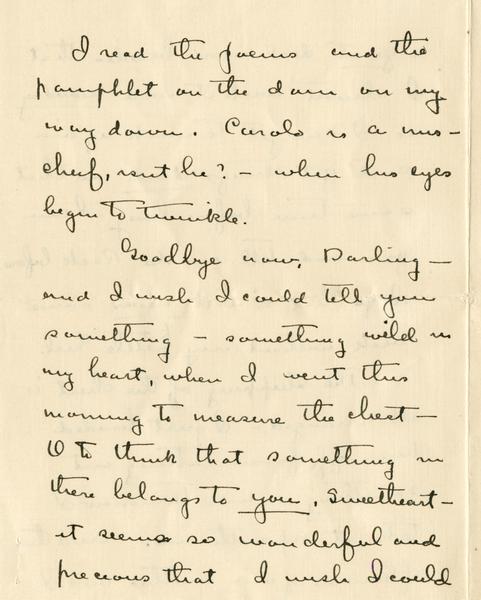 I read the poems and the
pamphlet on the dam on my
way down. Carolo is a mis-
cheif, isnt he? – when his eyes
begin to twinkle.
Goodbye now, Darling –
and I wish I could tell you
something – something wild in
my heart, when I went this
morning to measure the chest –
O to think that something in
there belongs to you, Sweetheart –
it seems so wonderful and
precious that I wish I could